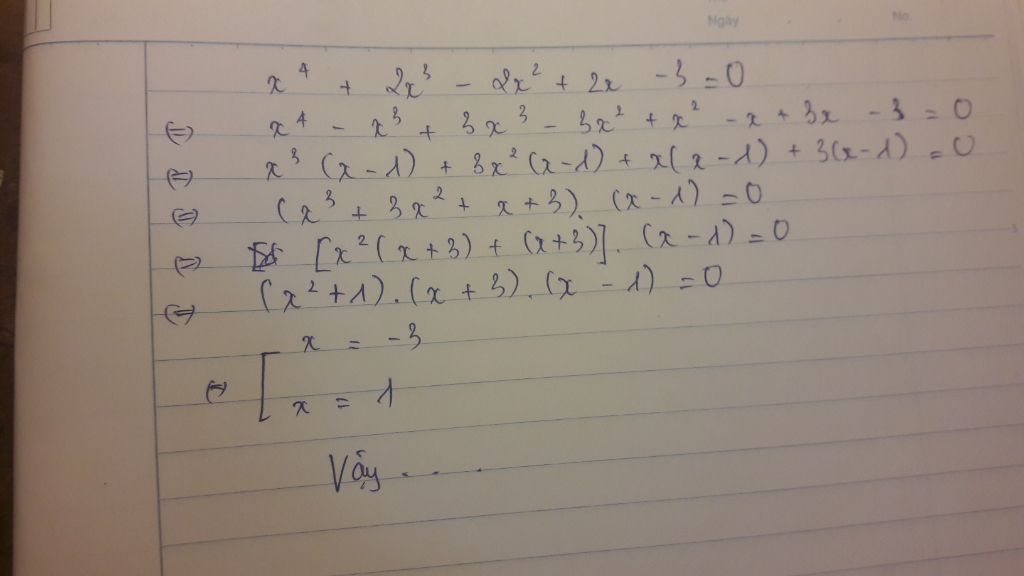 Ngày No.
x⁴ + 2x³ - 2x² + 2x - 3 = 0
(=) x⁴ - x³ + 3x³ - 3x² + x² - x + 3x - 3 = 0
(=) x³ (x - 1) + 3x² (x - 1) + x(x - 1) + 3(x - 1) = 0
(=) (x³ + 3x² + x + 3). (x - 1) = 0
(=) [x² (x + 3) + (x + 3)]. (x - 1) = 0
(=) (x² + 1). (x + 3). (x - 1) = 0
x = -3
(=) [
x = 1
Vậy . . .